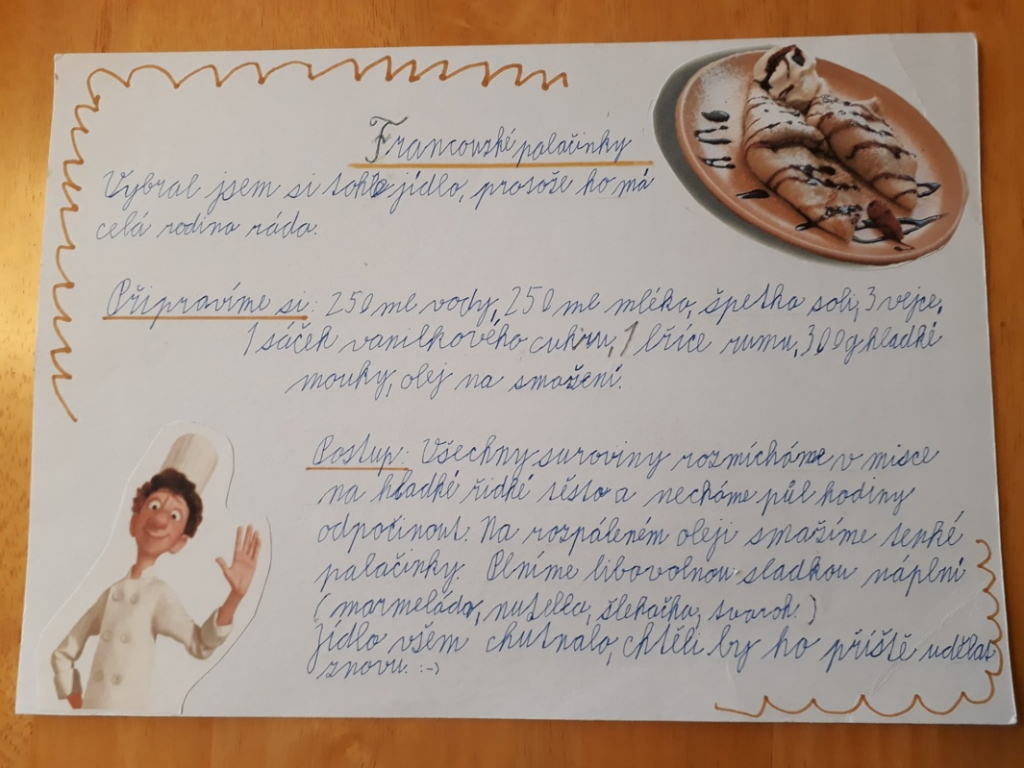 Francouzké palačinky
Vybral jsem si tohle jídlo, protože ho má
celá rodina ráda.
Připravíme si: 250 ml vody, 250 ml mléka, špetka soli, 3 vejce,
1 sáček vanilkového cukru, 1 lžíce rumu, 300g hladké
mouky, olej na smažení.
Postup: Všechny suroviny rozmícháme v misce
na hladké řídké těsto a necháme půl hodiny
odpočinout. Na rozpáleném oleji smažíme tenké
palačinky. Plníme libovolnou sladkou náplní
(marmeláda, nutella, šlehačka, tvaroh.)
Jídlo všem chutnalo, chtěli by ho příště udělat
znovu. :-)